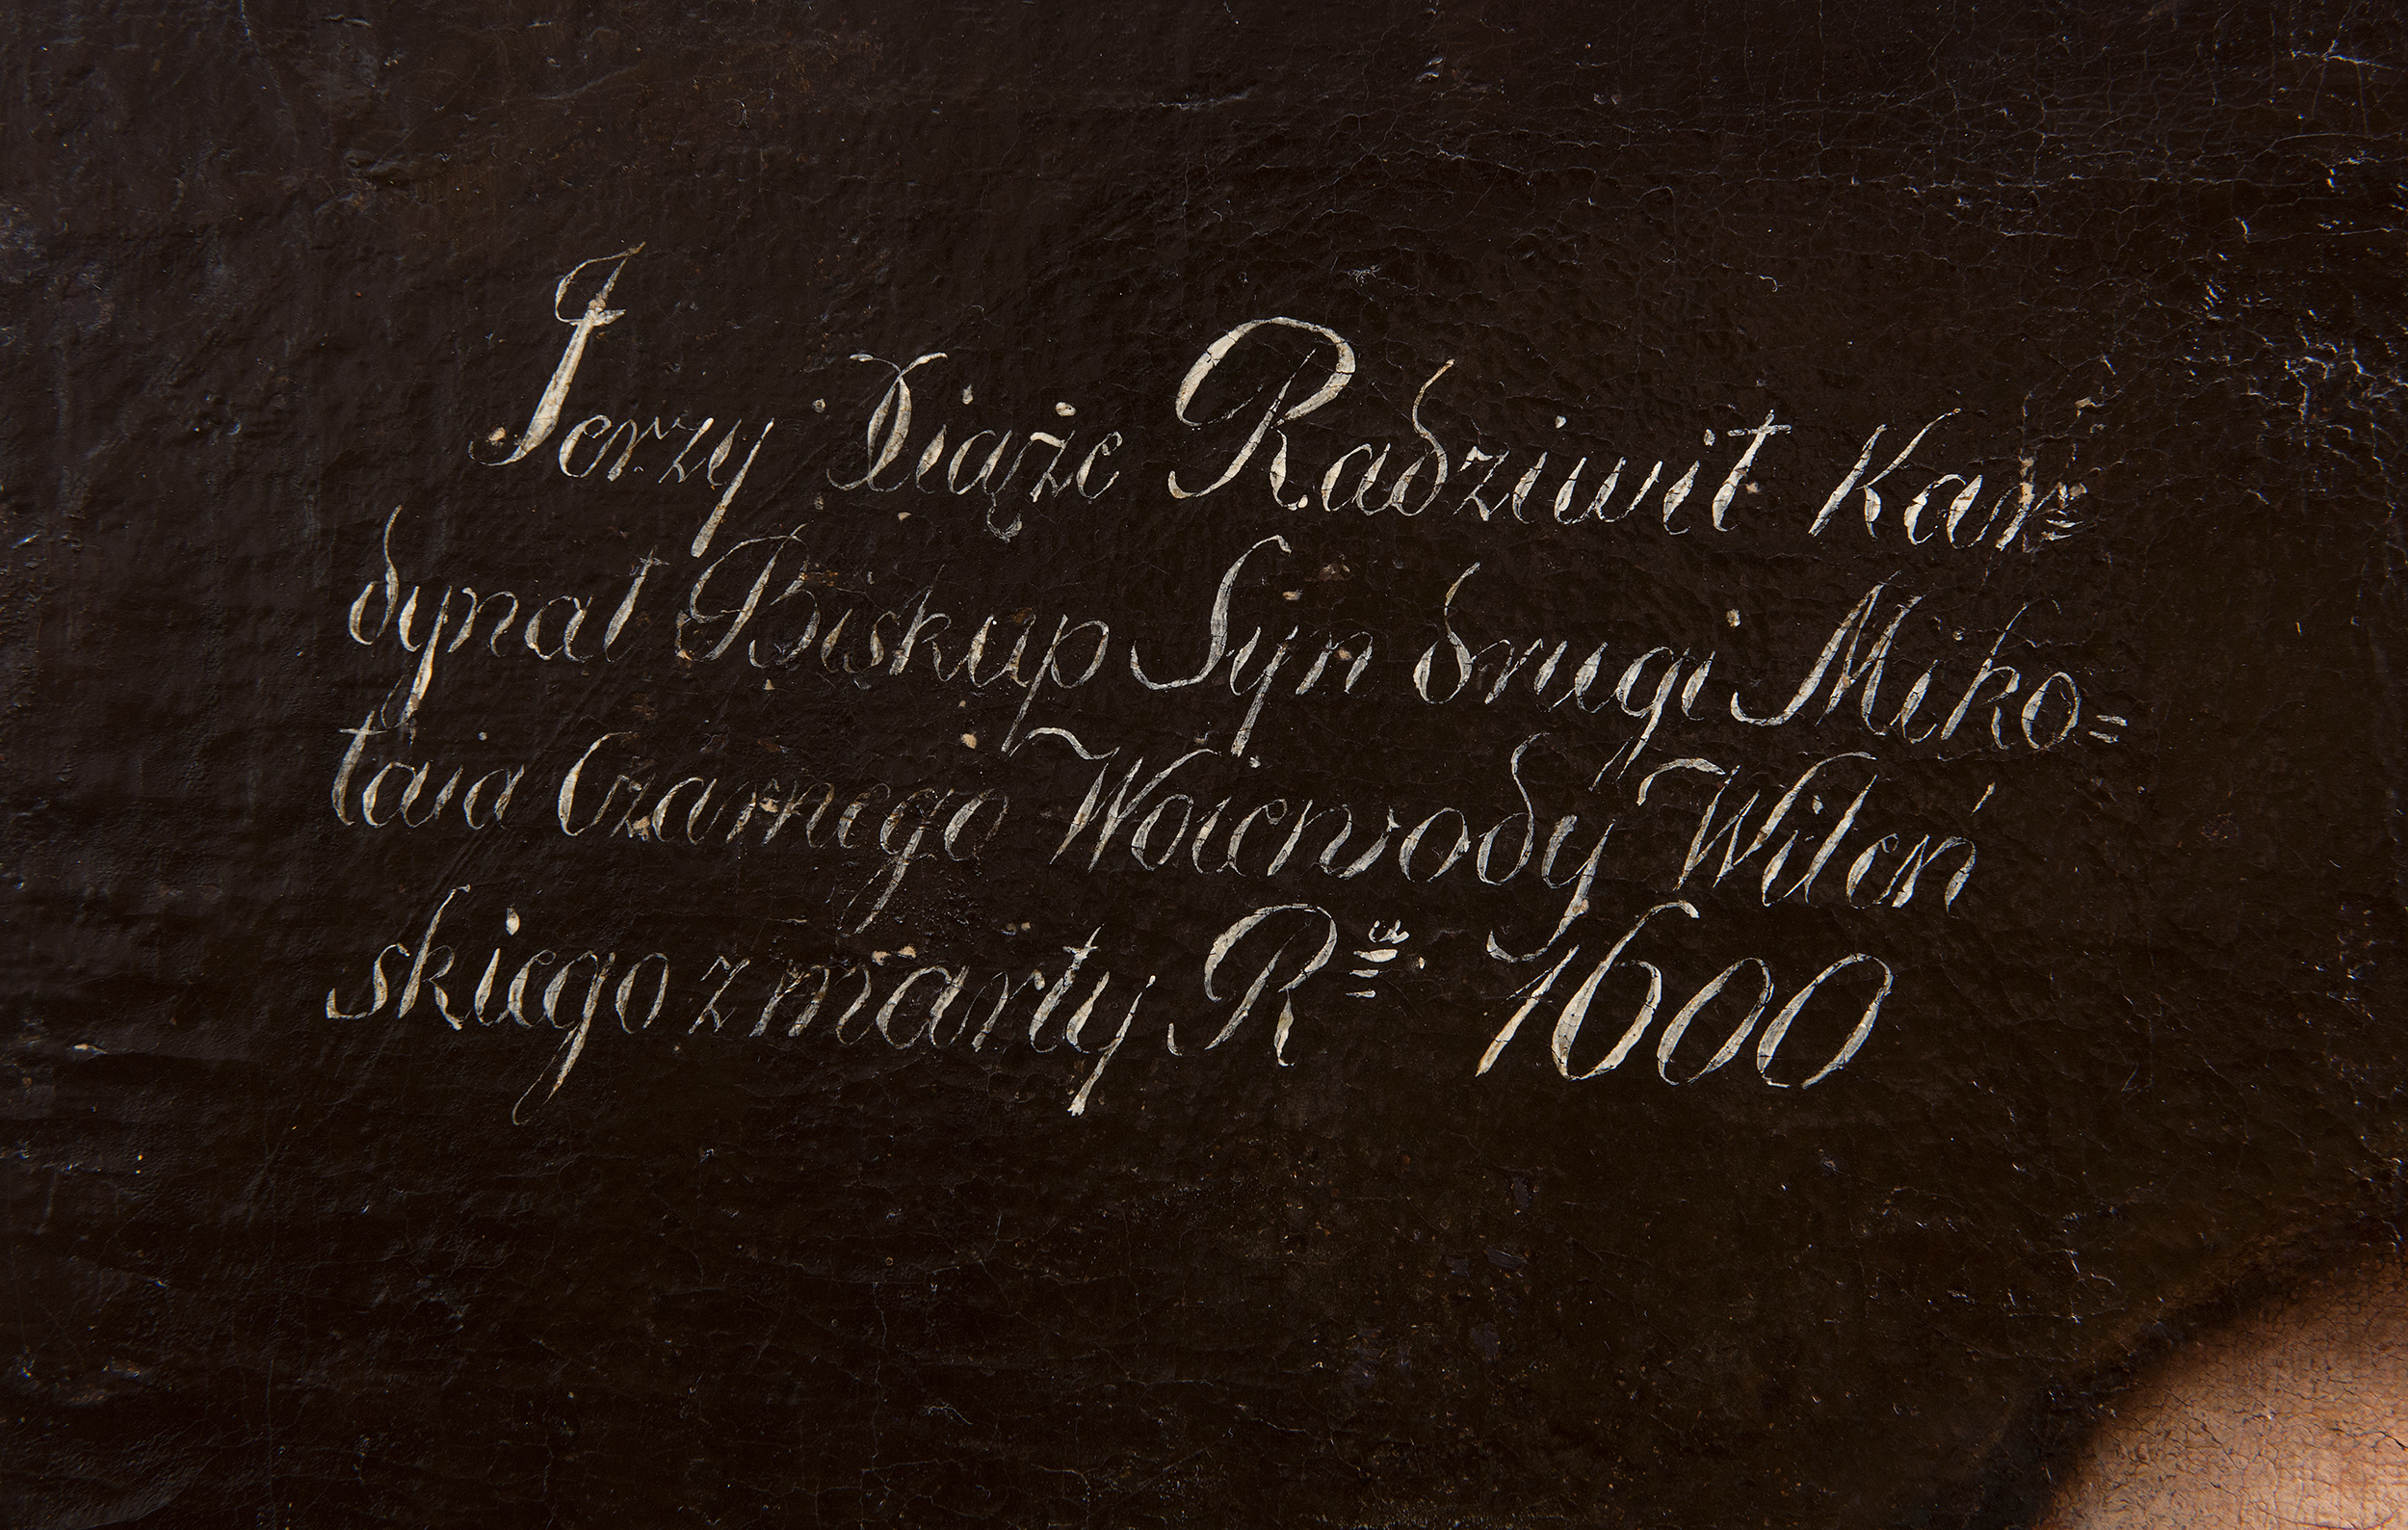 Jerzy Xiąże Radziwił Kar=
dynał Biskup Syn drugi Miko=
łaia Czarnego Woiewody Wileń
skiego zmarły Rᵘ 1600